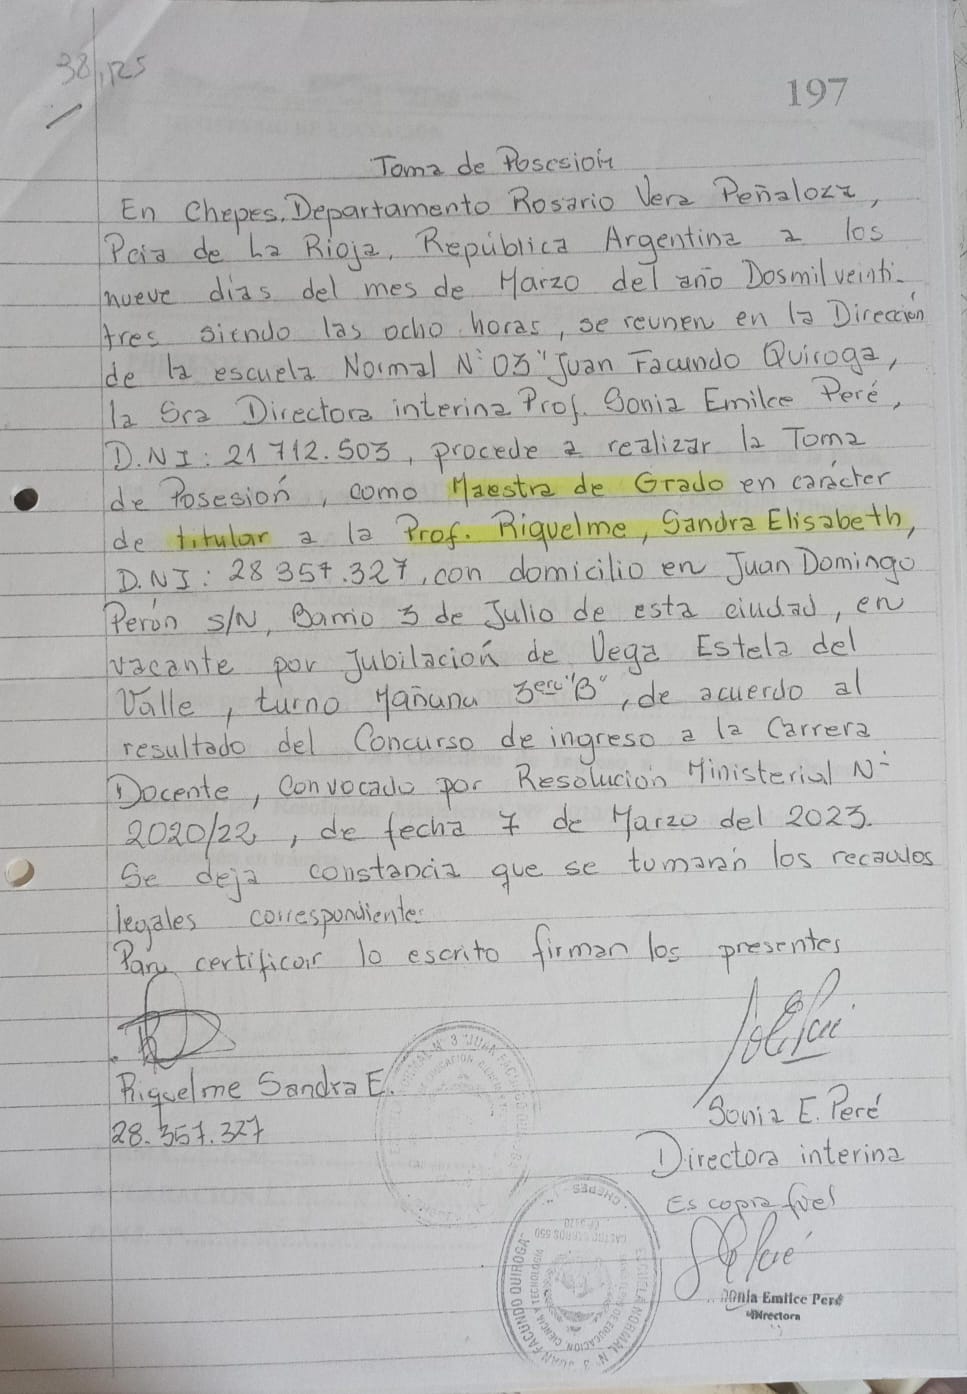 38,125
197
Toma de Posesión
En Chepes, Departamento Rosario Vera Peñaloza,
Pcia de La Rioja, República Argentina a los
nueve días del mes de Marzo del año Dosmil veinti-
tres siendo las ocho horas, se reunen en la Dirección
de la escuela Normal N° 03 "Juan Facundo Quiroga,
la Sra Directora interina Prof. Sonia Emilce Peré,
D.N.I: 21 712.503, procede a realizar la Toma
de Posesión, como Maestra de Grado en carácter
de titular a la Prof. Riquelme, Sandra Elisabeth,
D.N.I: 28 357.327, con domicilio en Juan Domingo
Perón S/N, Barrio 3 de Julio de esta ciudad, en
vacante por Jubilación de Vega Estela del
Valle, turno Mañana 3ero "B", de acuerdo al
resultado del Concurso de ingreso a la Carrera
Docente, Convocado por Resolución Ministerial N°
2020/22, de fecha 7 de Marzo del 2023.
Se deja constancia que se tomarán los recaudos
legales correspondientes
Para certificar lo escrito firman los presentes
Riquelme Sandra E.
28.357.327
Sonia E. Peré
Directora interina
Es copia fiel
Sonia Emilce Peré
Directora
ESCUELA NORMAL N° 3 "JUAN FACUNDO QUIROGA"
CHEPES